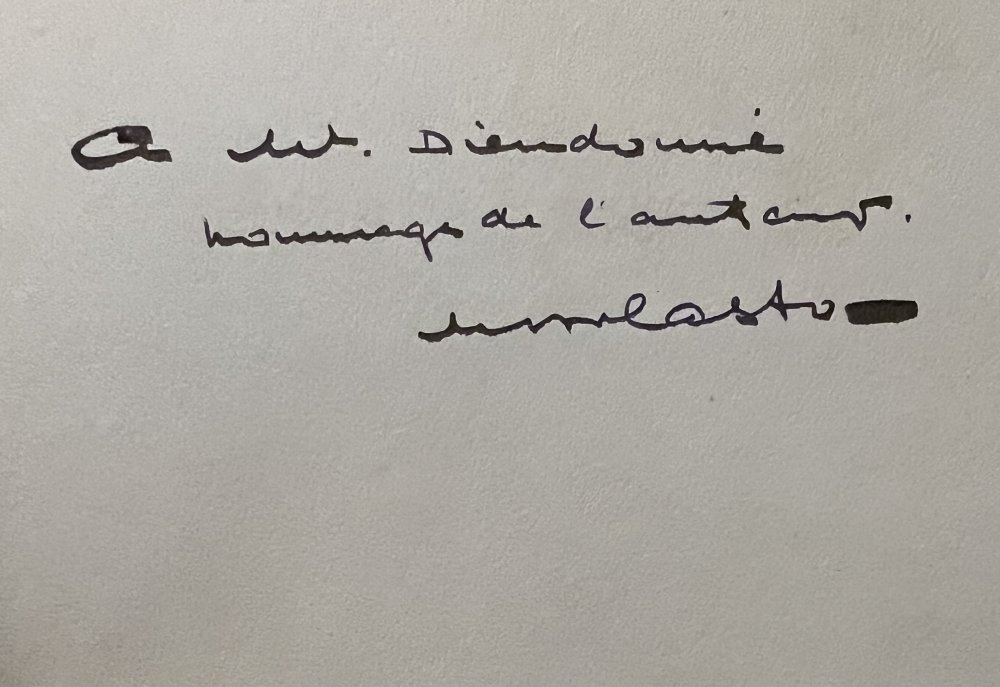 A M. Dieudonné
hommage de l'auteur.